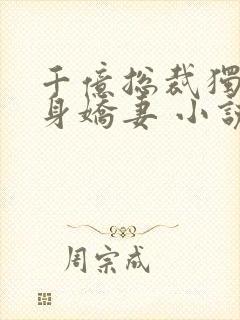 千億总裁獨
身嬌妻 小說
周宗成